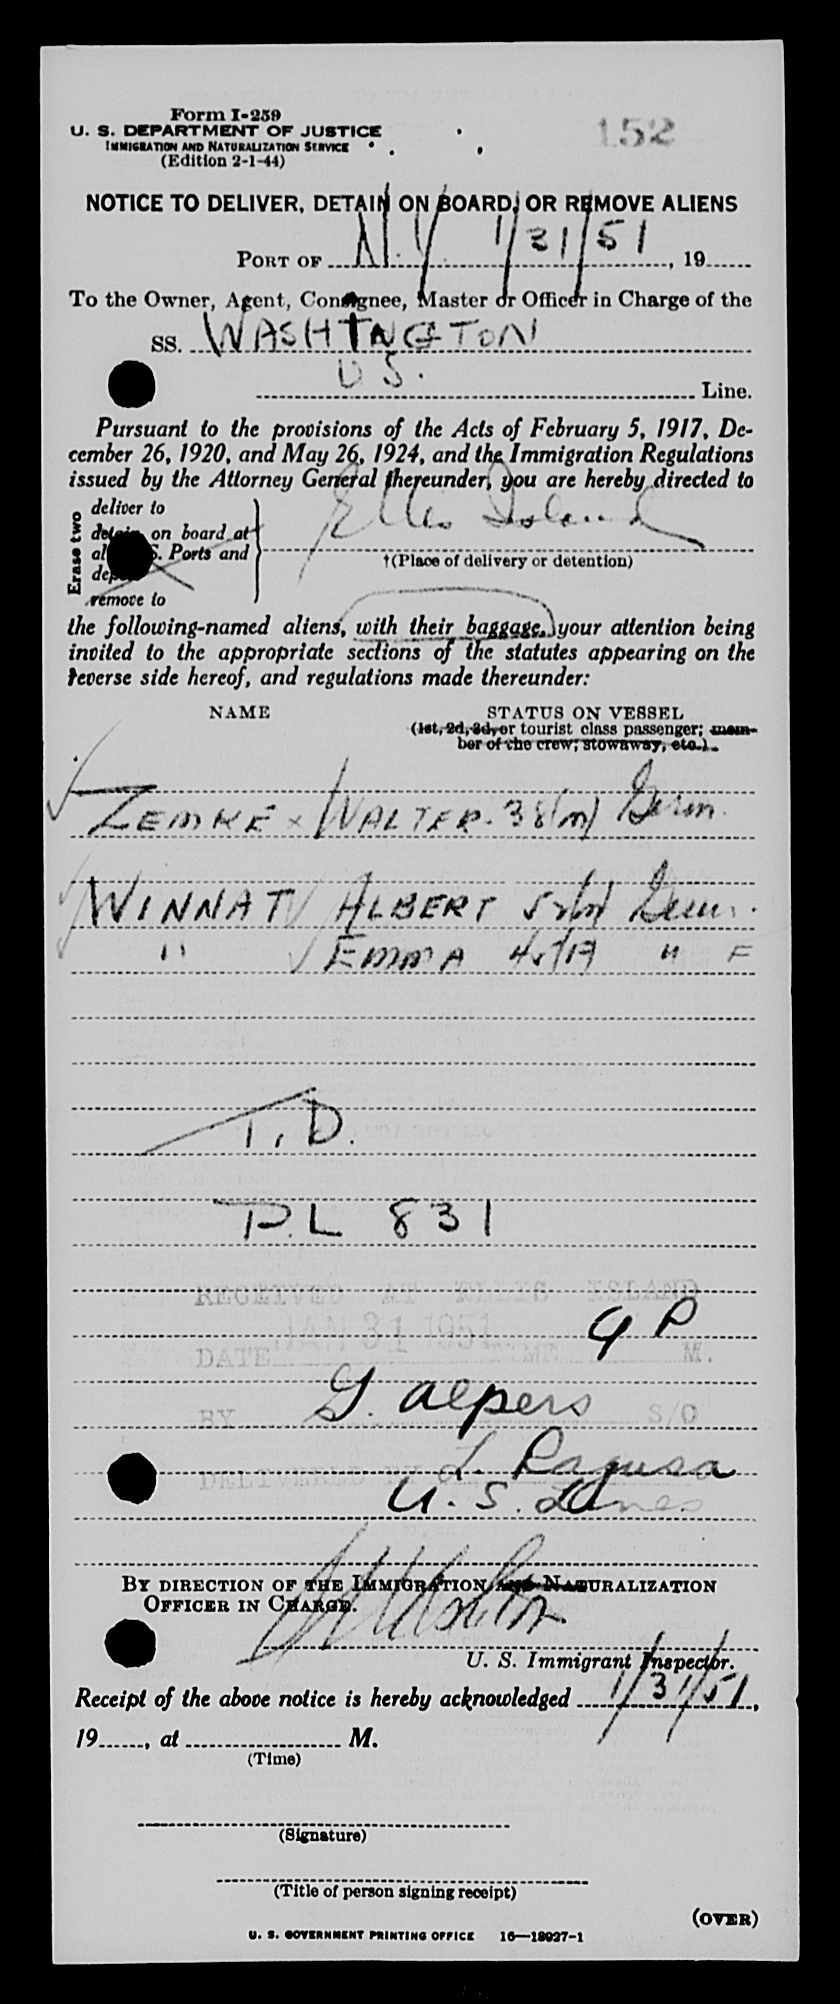 Form I-259
U. S. DEPARTMENT OF JUSTICE
IMMIGRATION AND NATURALIZATION SERVICE
(Edition 2-1-44)
152
NOTICE TO DELIVER, DETAIN ON BOARD, OR REMOVE ALIENS
PORT OF N.Y. 1/31/51, 19
To the Owner, Agent, Consignee, Master or Officer in Charge of the
SS. WASHINGTON
U S. Line.
Pursuant to the provisions of the Acts of February 5, 1917, De-
cember 26, 1920, and May 26, 1924, and the Immigration Regulations
issued by the Attorney General thereunder, you are hereby directed to
Erase two
deliver to
detain on board at
all U.S. Ports and
remove to
Ellis Island
†(Place of delivery or detention)
the following-named aliens, with their baggage, your attention being
invited to the appropriate sections of the statutes appearing on the
reverse side hereof, and regulations made thereunder:
NAME STATUS ON VESSEL
(1st, 2d, 3d, or tourist class passenger; mem-
ber of the crew, stowaway, etc.)
ZEMKE x WALTER. 38(m) Germ.
WINNAT ALBERT Germ.
" EMMA " F
T.D.
P.L 831
RECEIVED AT ELLIS ISLAND
9 P
DATE JAN 31 1951 M.
G. Alpers
BY S/O
L. Ragusa
DELIVERED BY
U.S. Lines
BY DIRECTION OF THE IMMIGRATION AND NATURALIZATION
OFFICER IN CHARGE.
U. S. Immigrant Inspector.
Receipt of the above notice is hereby acknowledged 1/31/51,
19, at M.
(Time)
(Signature)
(Title of person signing receipt)
(OVER)
U. S. GOVERNMENT PRINTING OFFICE 16—18927-1